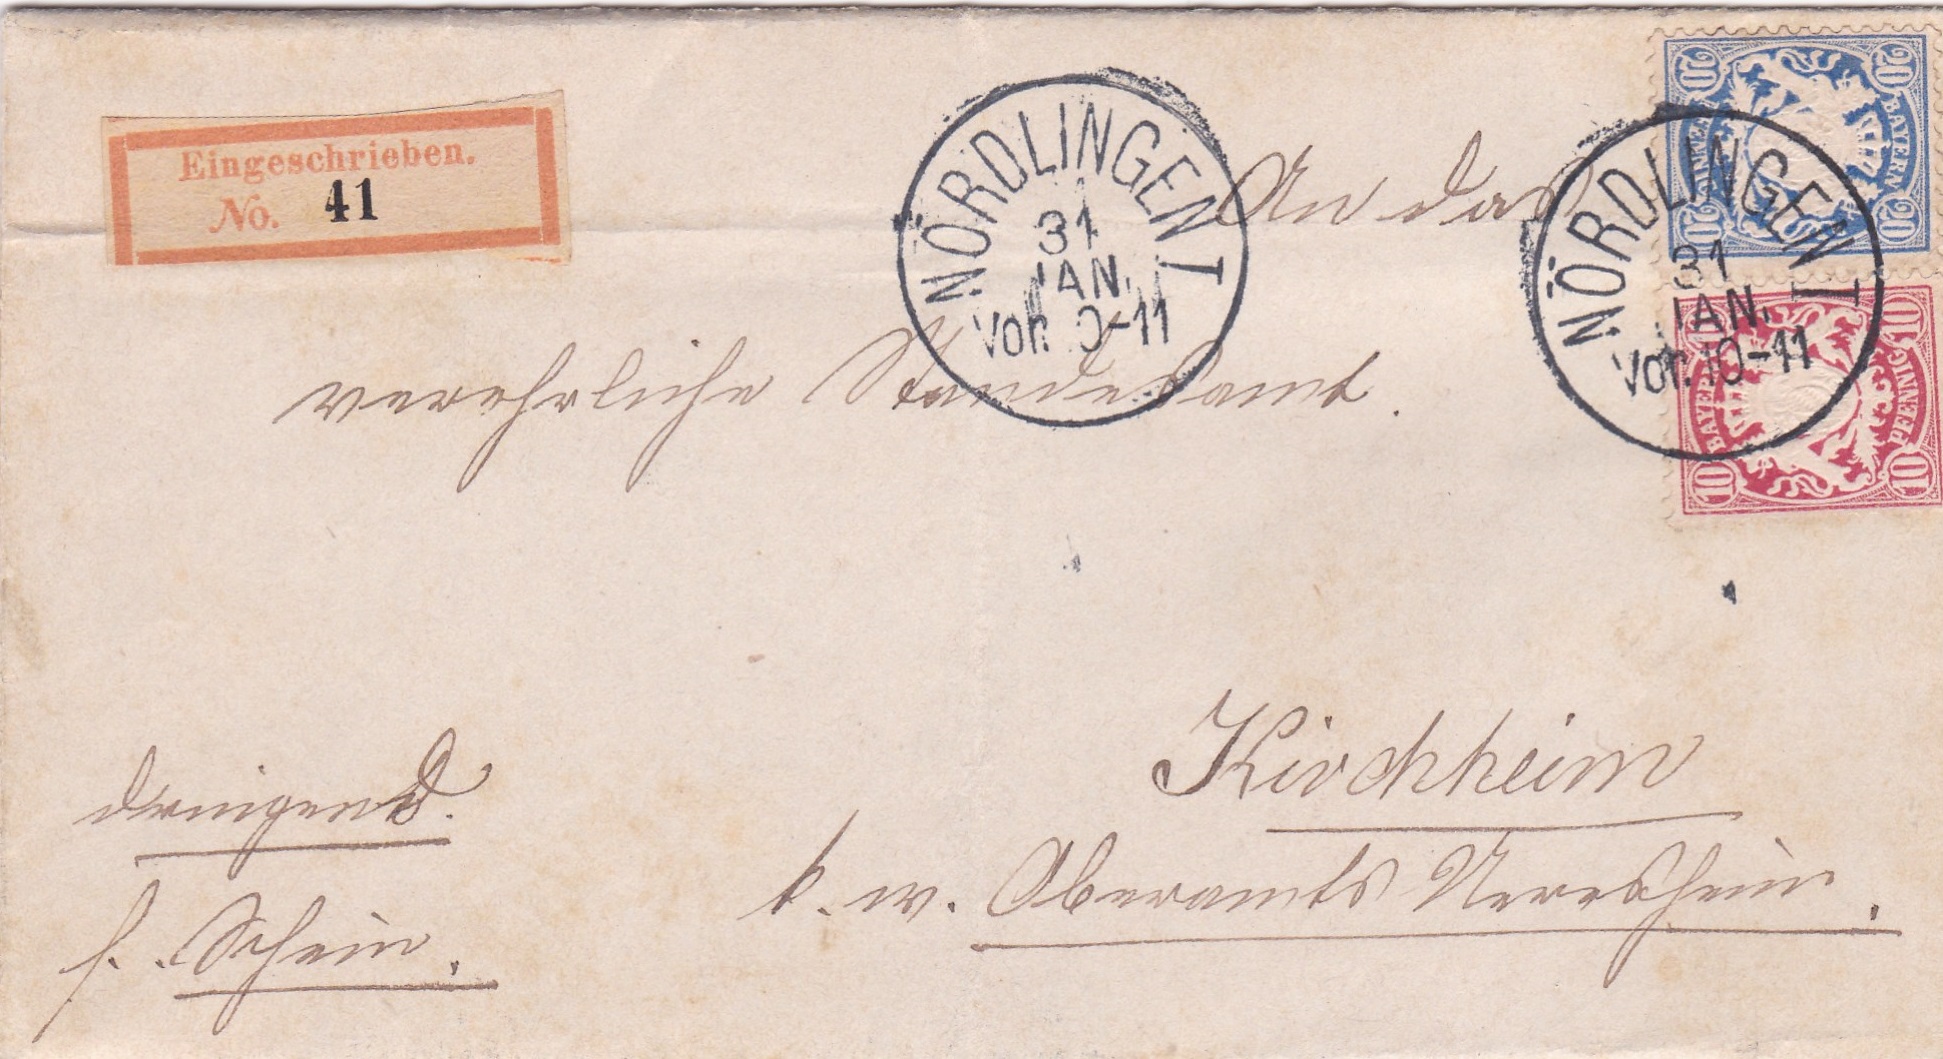 Eingeschrieben.
No. 41
NÖRDLINGEN I
31
JAN.
Vor. 10-11
NÖRDLINGEN I
31
JAN.
Vor. 10-11
20 20
BAYERN
20 20
10 10
BAYERN PFENNIG
10 10
An das
verehrliche Standesamt.
Kirchheim
k. w. Oberamts Neresheim.
dringend.
g. Schein.